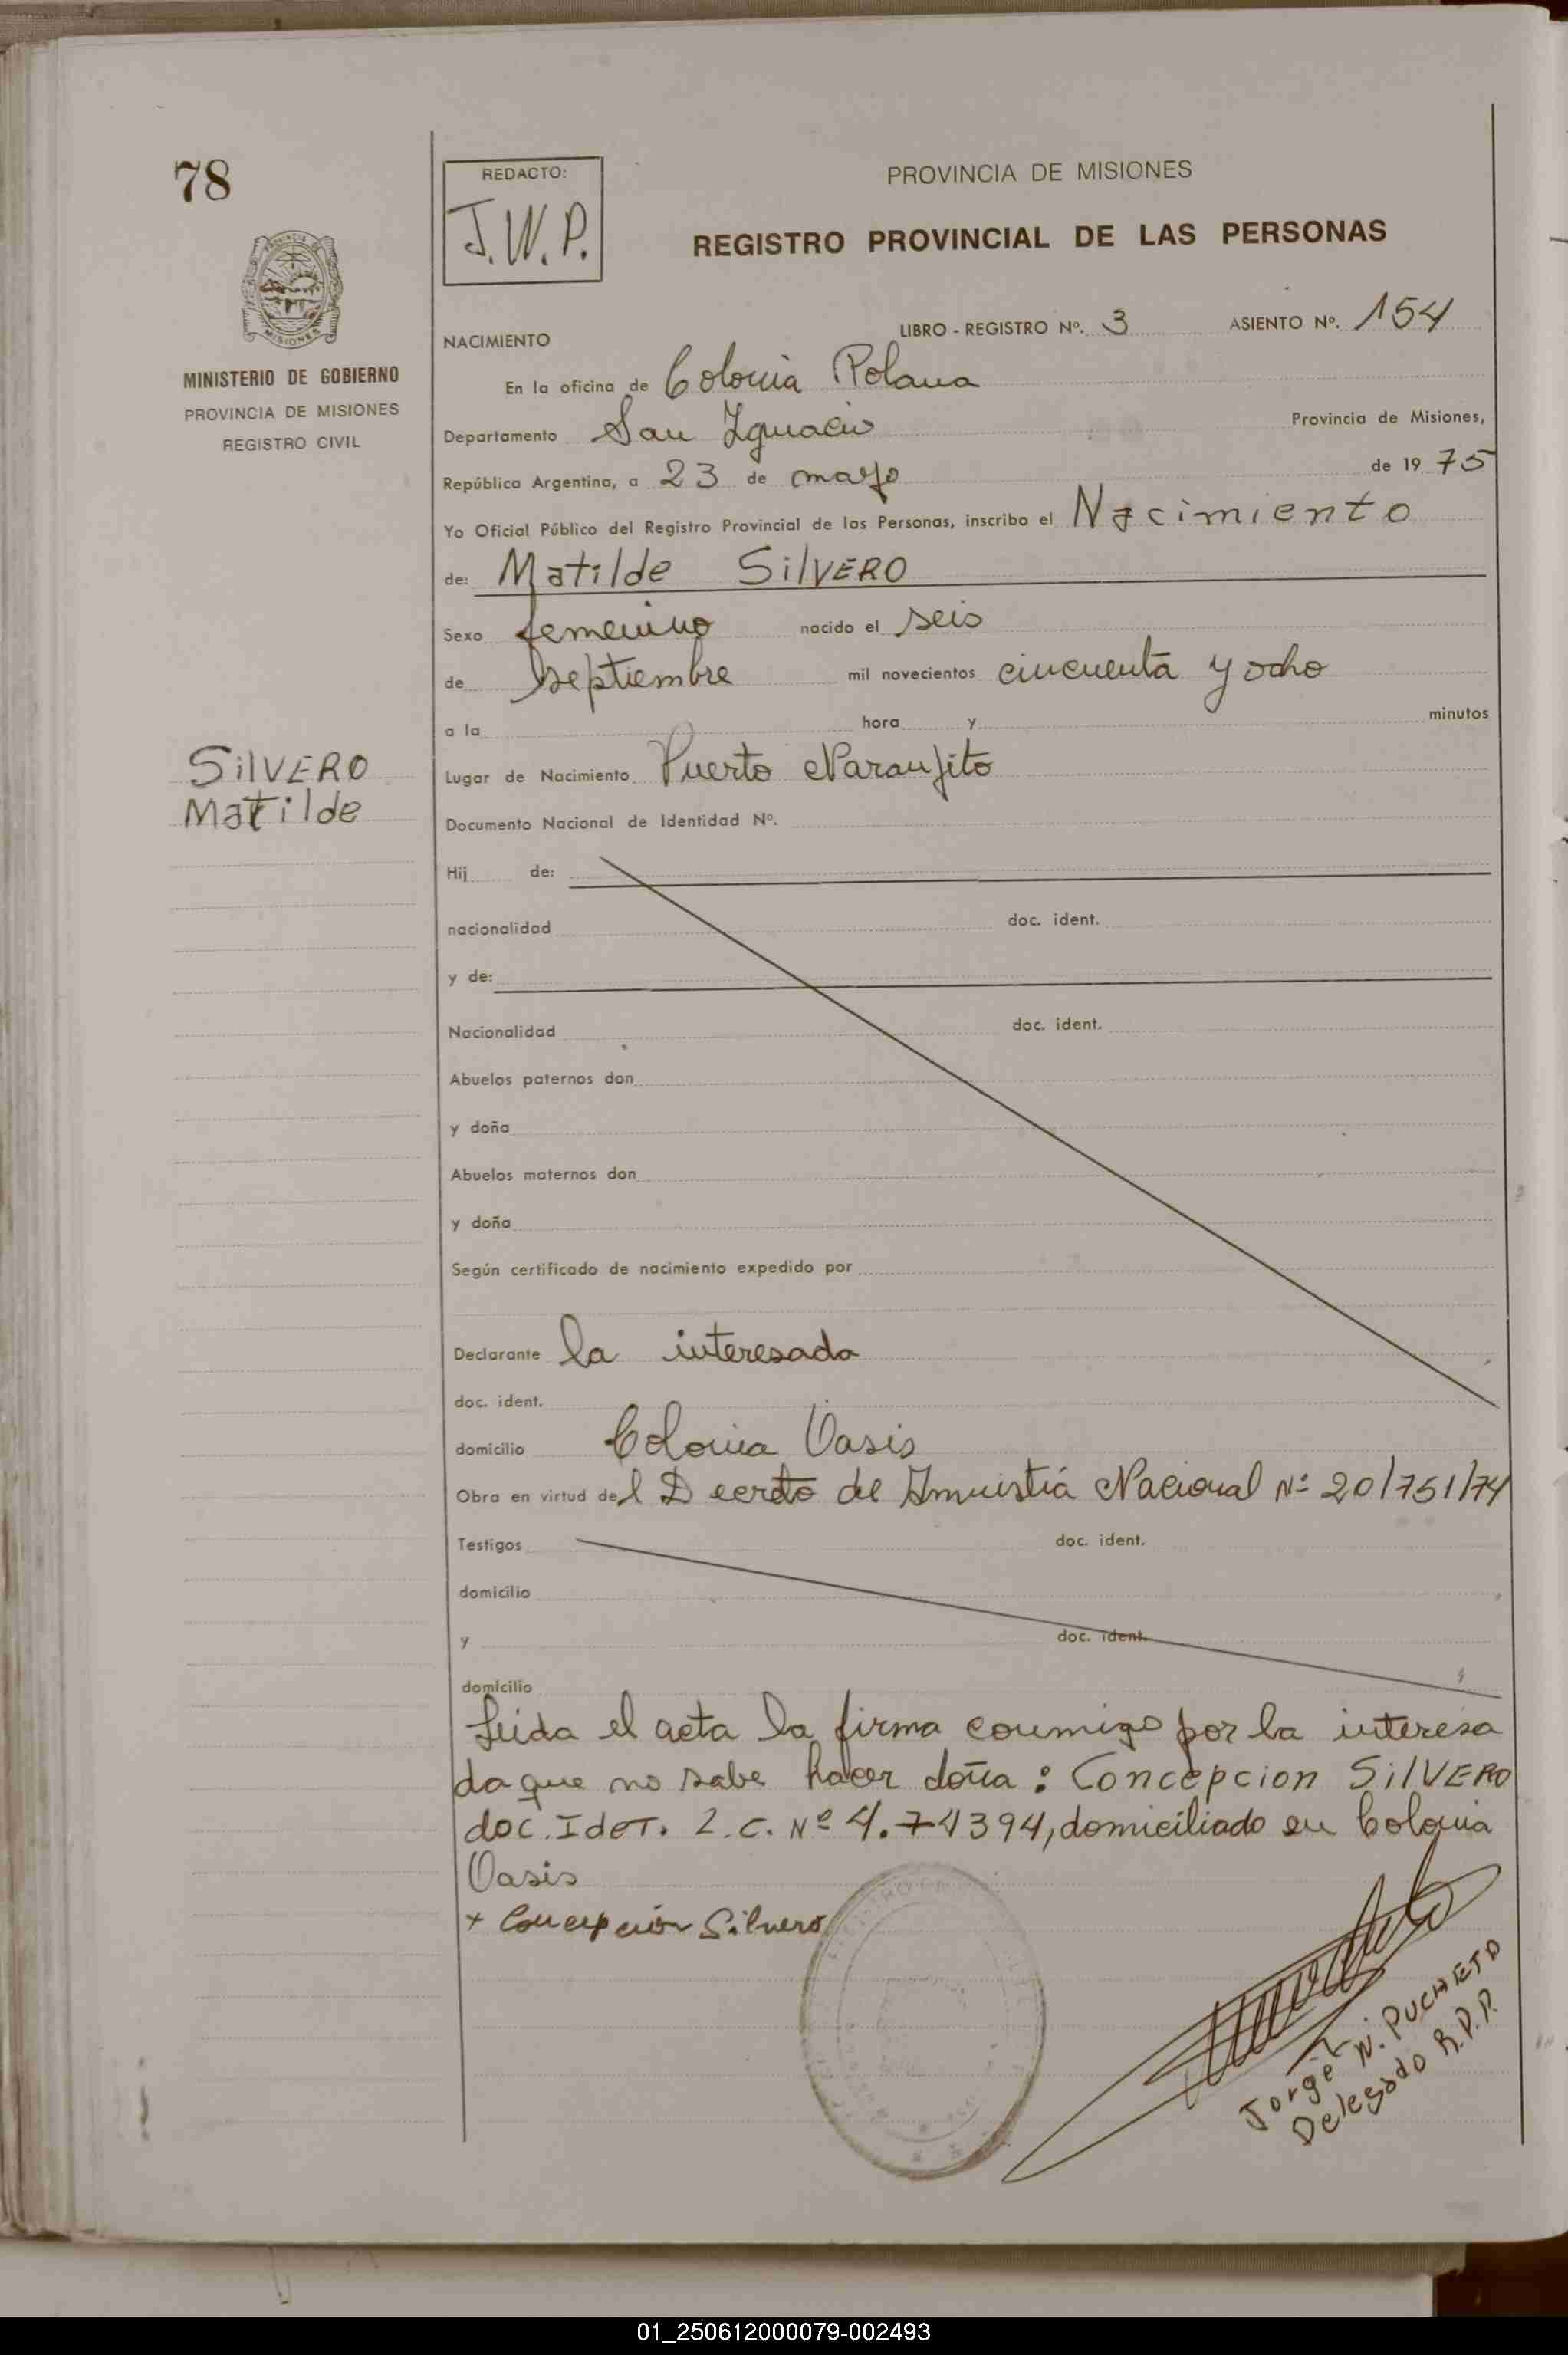 78
PROVINCIA DE MISIONES
MINISTERIO DE GOBIERNO
PROVINCIA DE MISIONES
REGISTRO CIVIL
SilVERO
Matilde
REDACTO:
J.W.P.
PROVINCIA DE MISIONES
REGISTRO PROVINCIAL DE LAS PERSONAS
NACIMIENTO LIBRO - REGISTRO Nº. 3 ASIENTO Nº. 154
En la oficina de Colonia Polana
Departamento San Ignacio Provincia de Misiones,
República Argentina, a 23 de mayo de 19 75
Yo Oficial Público del Registro Provincial de las Personas, inscribo el Nacimiento
de: Matilde SilVERO
Sexo femenino nacido el seis
de septiembre mil novecientos cincuenta y ocho
a la hora y minutos
Lugar de Nacimiento Puerto Naranjito
Documento Nacional de Identidad Nº.
Hij de:
nacionalidad doc. ident.
y de:
Nacionalidad doc. ident.
Abuelos paternos don
y doña
Abuelos maternos don
y doña
Según certificado de nacimiento expedido por
Declarante la interesada
doc. ident.
domicilio Colonia Oasis
Obra en virtud del Decreto de Amnistia Nacional Nº 20/751/74
Testigos doc. ident.
domicilio
y doc. ident.
domicilio
Leida el acta la firma conmigo por la interesa
da que no sabe hacer doña: Concepcion SilVERO
doc. IdeT. L.C. Nº 4.741394, domiciliado en Colonia
Oasis
+ Concepción Silvero
Jorge W. PUCHETA
Delegado R.P.P.
01_250612000079-002493